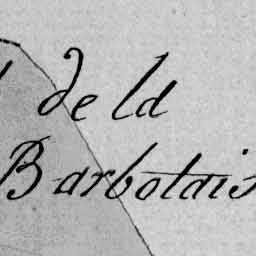 de la
Barbotais